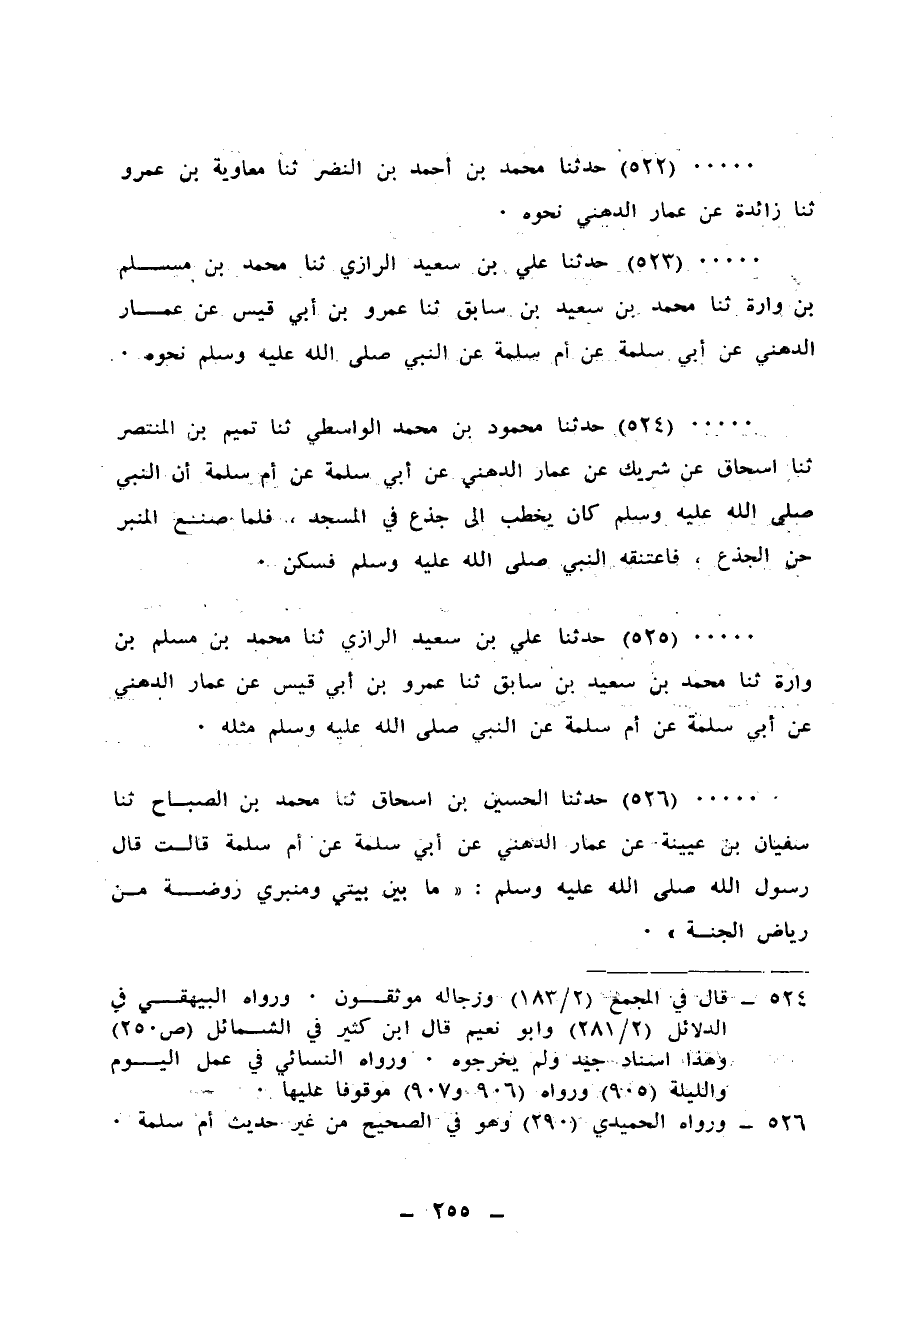 ٠٠٠٠٠ (٥٢٢) حدثنا محمد بن أحمد بن النضر ثنا معاوية بن عمرو
ثنا زائدة عن عمار الدهني نحوه ٠
٠٠٠٠٠ (٥٢٣) حدثنا علي بن سعيد الرازي ثنا محمد بن مسلم
بن وارة ثنا محمد بن سعيد بن سابق ثنا عمرو بن أبي قيس عن عمار
الدهني عن أبي سلمة عن أم سلمة عن النبي صلى الله عليه وسلم نحوه ٠
٠٠٠٠٠ (٥٢٤) حدثنا محمود بن محمد الواسطي ثنا تميم بن المنتصر
ثنا اسحاق عن شريك عن عمار الدهني عن أبي سلمة عن أم سلمة أن النبي
صلى الله عليه وسلم كان يخطب الى جذع في المسجد ، فلما صنع المنبر
حن الجذع ، فاعتنقه النبي صلى الله عليه وسلم فسكن ٠
٠٠٠٠٠ (٥٢٥) حدثنا علي بن سعيد الرازي ثنا محمد بن مسلم بن
وارة ثنا محمد بن سعيد بن سابق ثنا عمرو بن أبي قيس عن عمار الدهني
عن أبي سلمة عن أم سلمة عن النبي صلى الله عليه وسلم مثله ٠
٠٠٠٠٠٠ (٥٢٦) حدثنا الحسين بن اسحاق ثنا محمد بن الصباح ثنا
سفيان بن عيينة عن عمار الدهني عن أبي سلمة عن أم سلمة قالت قال
رسول الله صلى الله عليه وسلم : « ما بين بيتي ومنبري روضة من
رياض الجنة » ٠
٥٢٤ ـ قال في المجمع (١٨٣/٢) ورجاله موثقون ٠ ورواه البيهقي في
الدلائل (٢٨١/٢) وابو نعيم قال ابن كثير في الشمائل (ص٢٥٠)
وهذا اسناد جيد ولم يخرجوه ٠ ورواه النسائي في عمل اليوم
والليلة (٩٠٥) ورواه (٩٠٦ و٩٠٧) موقوفا عليها ٠
٥٢٦ ـ ورواه الحميدي (٢٩٠) وهو في الصحيح من غير حديث أم سلمة ٠
ـ ٢٥٥ ـ